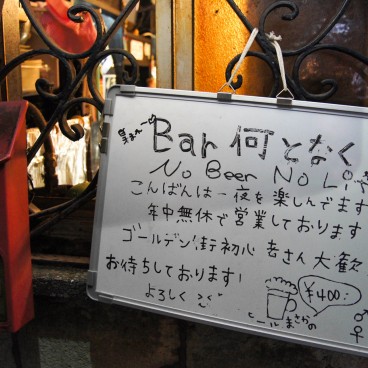 Bar 何となく
No Beer No Li
こんばんは一夜を楽しんでます
年中無休で営業しております
ゴールデン街初心者さん大歓
お待ちしております!
よろしく
¥400:
ビールまさかの
♂
♀